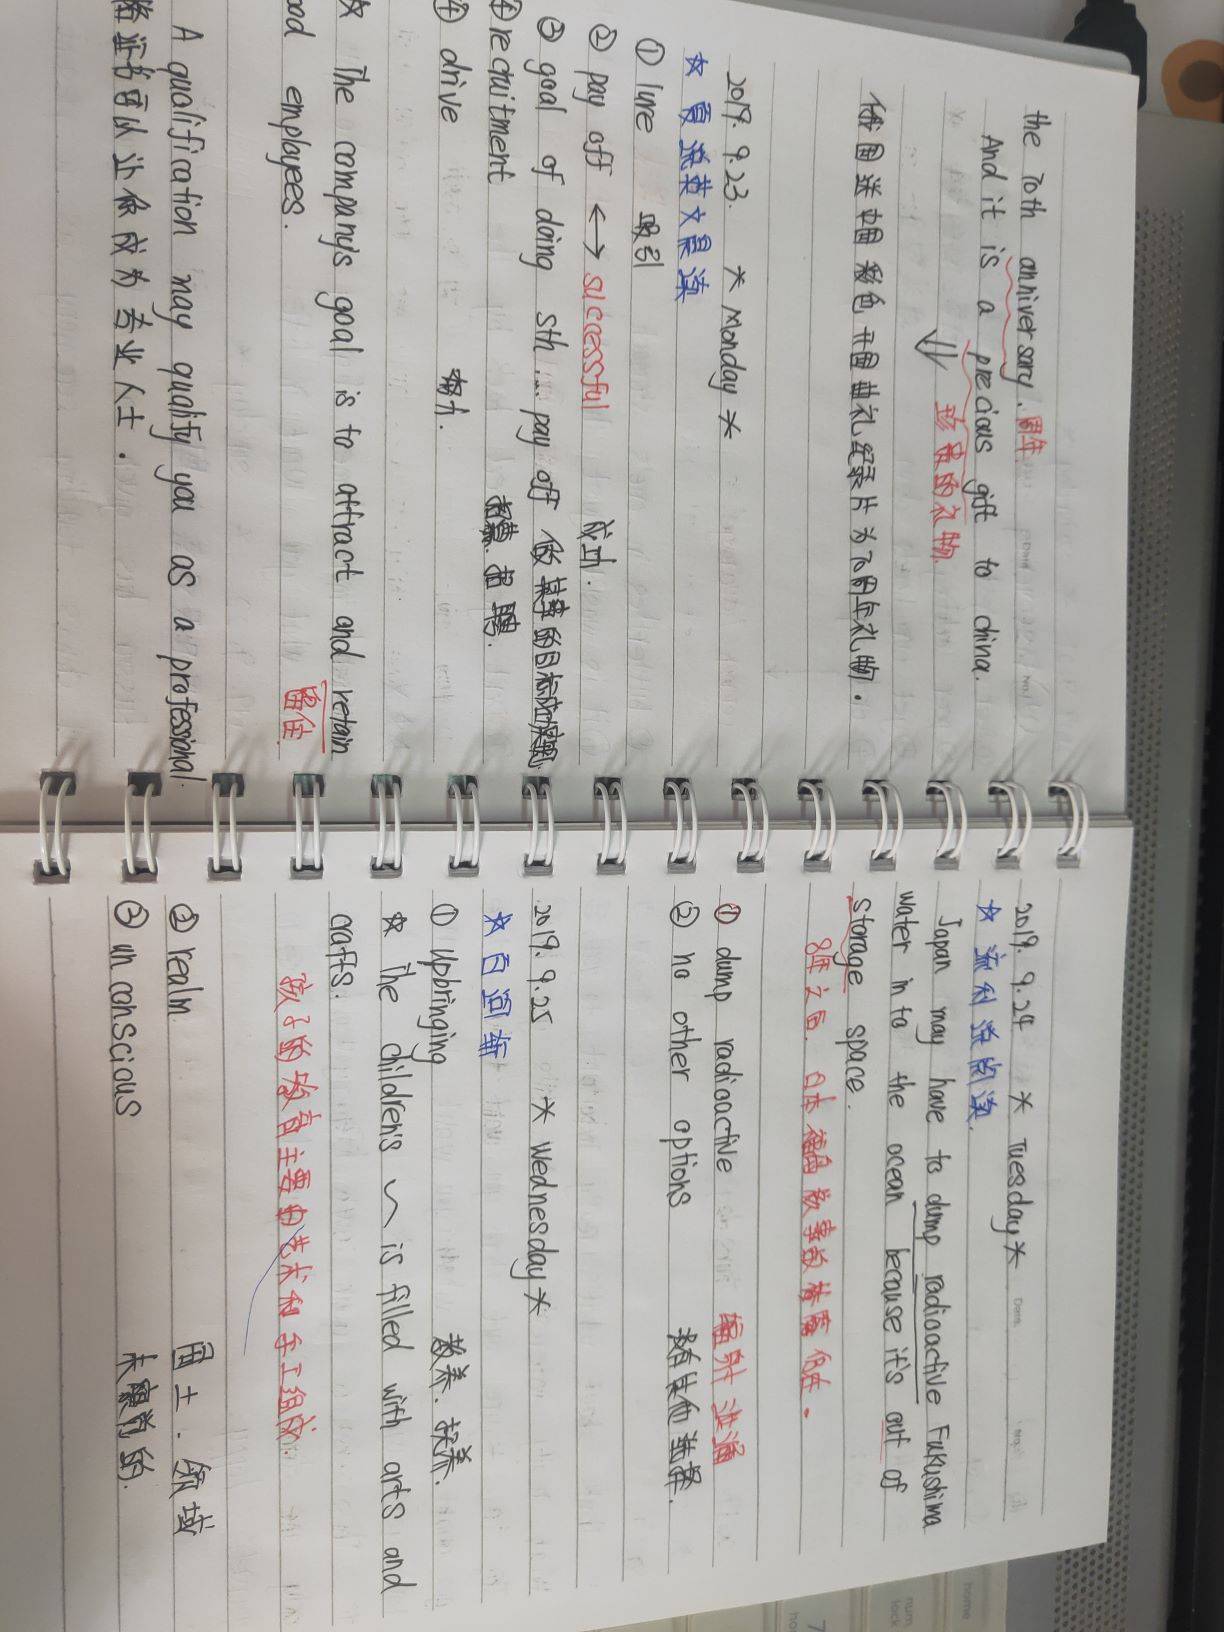 the 70th anniversary. 周年
And it is a precious gift to china.
珍贵的礼物.
俄国送中国彩色开国典礼纪录片为70周年礼物.
2019. 9.23. * Monday *
☆ 夏说英文晨读
① lure 吸引
② pay off ↔ successful 成功.
③ goal of doing sth... pay off 做某事的目标
④ recruitment 招募. 招聘.
④ drive 努力.
☆ The company's goal is to attract and retain
留住.
ood employees.
A qualification may qualify you as a professional.
格证书可以让你成为专业人士.
2019. 9.24 * Tuesday *
☆ 流利说阅读.
Japan may have to dump radioactive Fukushima
water in to the ocean because it's out of
storage space.
8年之后. 日本福岛
① dump radioactive
② no other options 没有其他选择.
2019. 9.25 * Wednesday *
☆ 百词斩
① upbringing 教养. 抚养.
☆ The children's ~ is filled with arts and
crafts.
孩子的教育主要由艺术和手工组成.
② realm. 国土. 领域
③ un conscious 未察觉的.
Date
No.
Date
No.
home
num
lock
7